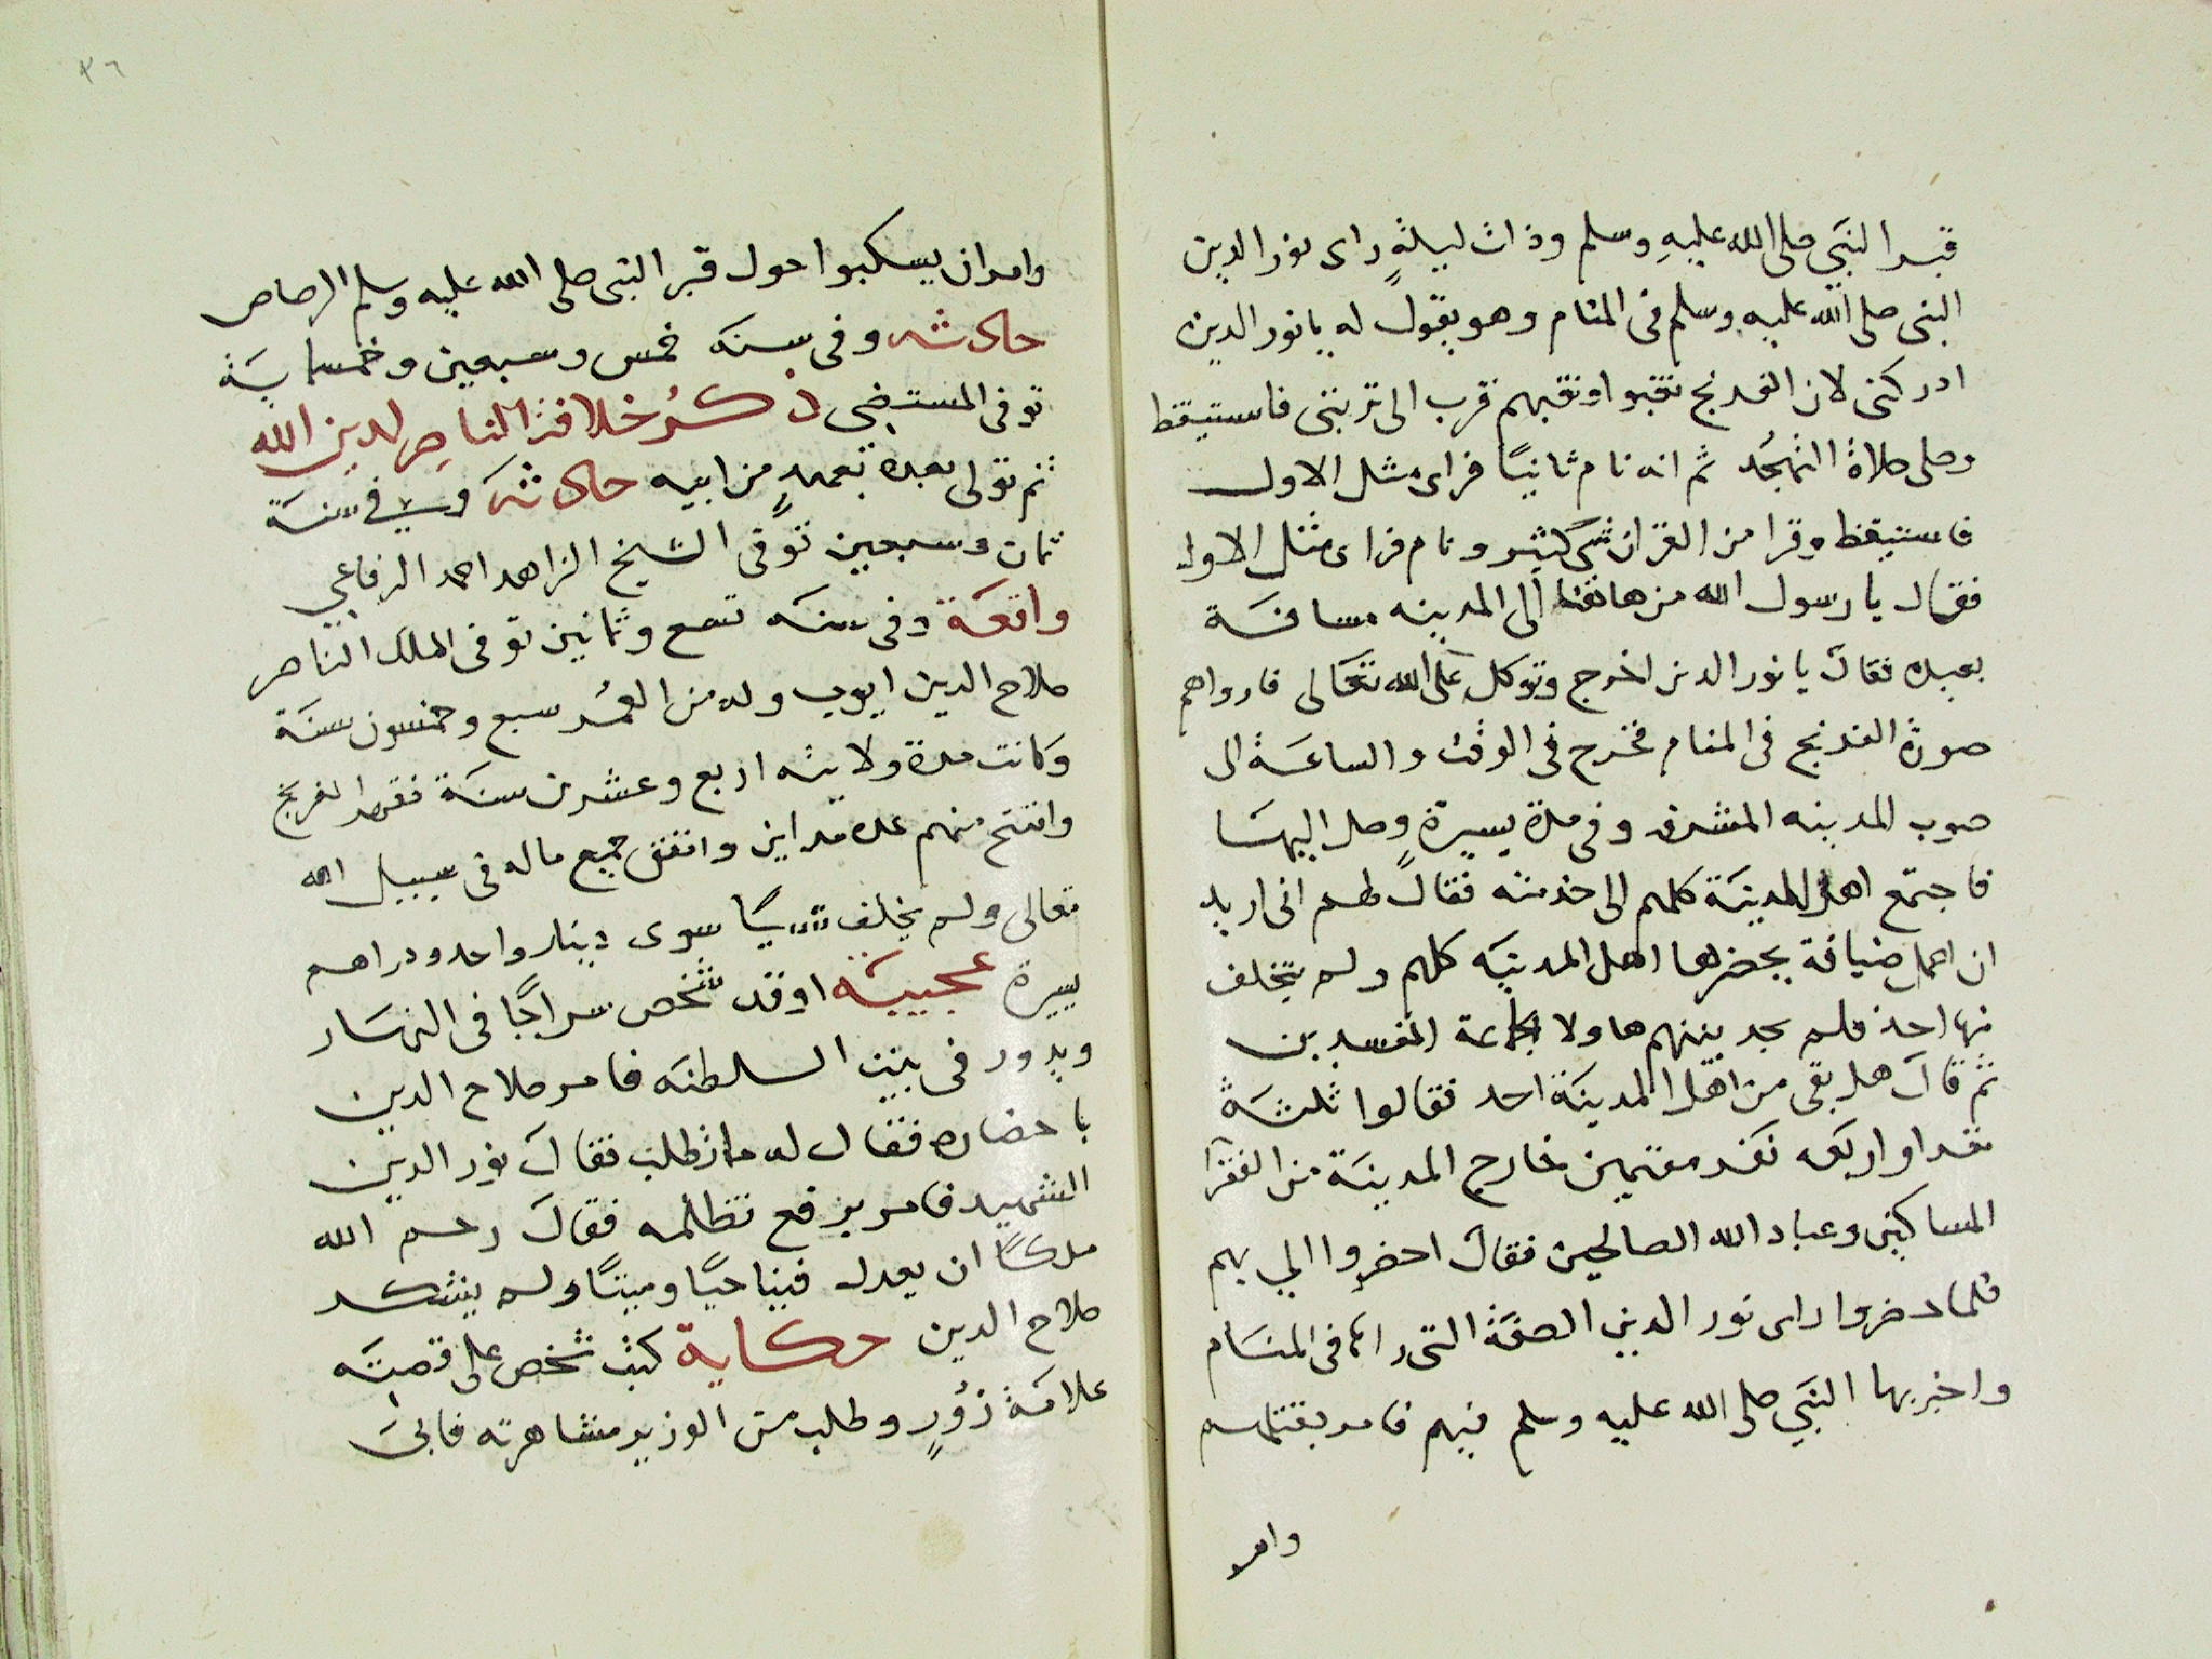 قبر النبي صلى الله عليه وسلم وذات ليلةٍ راى نور الدين
النبى صلى الله عليه وسلم فى المنام وهو يقول له يا نور الدين
ادركنى لان الفرنج نقبوا ونقبهم قرب الى تربتى فاستيقظ
وصلى صلاة التهجُد ثم انه نام ثانيًا فراى مثل الاول
فاستيقظ وقرا من القران شى كثير ونام فراى مثل الاول
فقال يا رسول الله من هاهنا الى المدينه مسافَة
بعيده فقال يا نور الدين اخرج وتوكل على الله تعَالى فارواهم
صورة الفرنج فى المنام فخرج فى الوقت والساعَة الى
صوب المدينه المشرفه وفى مدة يسيرةٍ وصل اليهَا
فاجتمع اهل المدينَة كلهم الى خدمته فقال لهم انى اريد
ان اعمل ضيافة يحضرها اهل المدينَه كلهم ولم يتخلف
منها احد فلم يجد بينهم هاولا الجماعة المفسدين
ثم قال هل بقى من اهل المدينَة احد فقالوا ثلثَة
نفر او اربعَه نفر مقيمين خارج المدينَة من الفقرا
المساكين وعباد الله الصالحين فقال احضروا الي بهم
فلما حضروا راى نور الدين الصفَة التى راها فى المنَام
واخبر بها النبَي صلى الله عليه وسلم فيهم فامر بقتلهم
وامر
٣٦
وامر ان يسكبوا حول قبر النبى صلى الله عليه وسلم الرصاص
حادثه وفى سنَه خمس وسبعين وخمسمايَة
توفى المستضي ذكرُ خلافة الناصِر لدين الله
ثم تولى بعده بعهدٍ من ابيه حادثه وفي سنَة
ثمان وسبعين توفى الشيخ الزاهد احمد الرفاعي
واقعَة وفى سنَه تسع وثمانين توفى الملك الناصر
صلاح الدين ايوب وله من العمُر سبع وخمسون سنَة
وكانت مدة ولايته اربع وعشرين سنَة فقهر الفرنج
وافتتح منهم عدة مداين وانفق جميع ماله فى سبيل الله
تعالى ولم يخلف شيًا سوى دينار واحد ودراهم
يسيرة عجيبَه اوقد شخص سراجًا فى النهَار
ويدور فى بيت السلطنَه فامر صلاح الدين
باحضاره فقال له ماذ تطلب فقال نور الدين
الشهيد فامر برفع تظلمه فقال رحم الله
ملكًا ان يعدل فينا حيًا وميتًا ولم ينشكد
صلاح الدين حكاية كتب شخص على قصتَه
علامَة زُورٍ وطلب من الوزير مشاهرته فابىَ